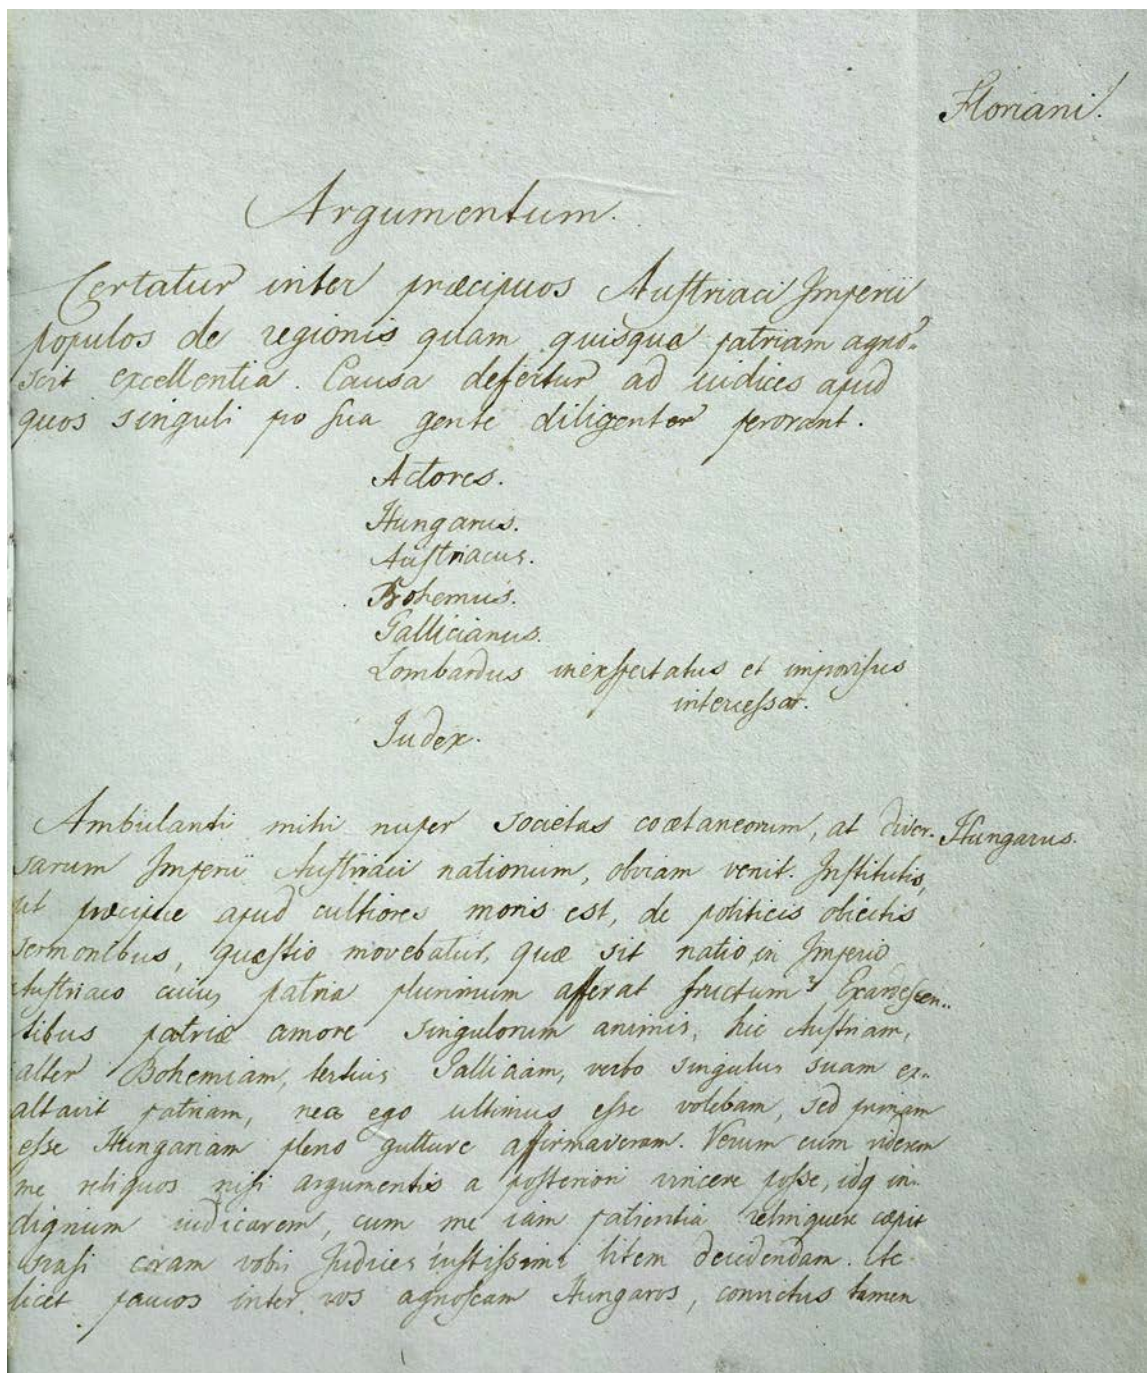 Floriani.
Argumentum.
Certatur inter præcipuos Auſtriaci Imperii
populos de regionis quam quisque patriam agno-
scit excellentia. Causa defertur ad iudices apud
quos singuli po ſua gente diligenter perorant.
Actores.
Hungarus.
Auſtriacus.
Bohemus.
Gallicianus.
Lombardus inexſpectatus et improviſus
interceſsor.
Judex.
Ambulanti mihi nuper societas coætaneorum, at diver- Hungarus.
sarum Imperii Auſtriaci nationum, obviam venit. Inſtitutis,
ut præcipue apud cultiores moris est, de politicis obiectis
sermonibus, quæſtio movebatur, quæ sit natio in Imperio
Auſtriaco cuius patria plurimum afferat fructum? Exardeſcen-
tibus patriæ amore singulorum animis, hic Auſtriam,
alter Bohemiam, tertius Galliciam, verbo singulus suam ex-
altavit patriam, nec ego ultimus eſse volebam, sed primam
eſse Hungariam pleno gutture affirmaveram. Verum cum viderem
me reliquos niſi argumentis a poſteriori vincere poſse, idq in-
dignum iudicarem, cum me iam patientia relinquere cœpit
coram vobis Judices iuſtiſsimi litem decidendam.
licet paucos inter vos agnoſcam Hungaros, convictus tamen